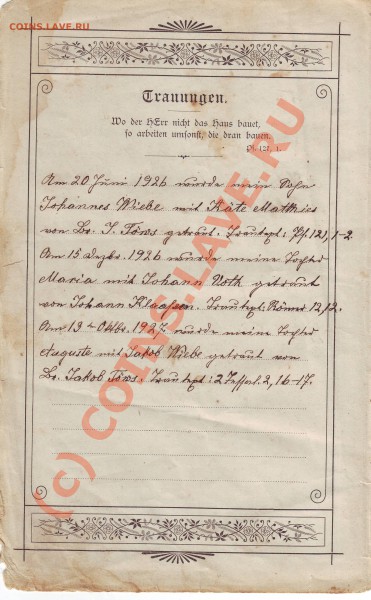 COINS.LAVE.RU
Trauungen.
Wo der HErr nicht das Haus bauet,
so arbeiten umsonst, die dran bauen.
Ps. 127, 1.
Am 20 Juni 1926 wurde mein Sohn
Johannes Wiebe mit Käte Matthies
von Br. J. Töws getraut. Trautext: Ps. 121, 1-2
Am 15 Dezbr. 1926 wurde meine Tochter
Maria mit Johann Noth getraut
von Johann Klaassen. Trautext. Römer 12,12.
Am 13 Oktbr. 1927 wurde meine Tochter
Auguste mit Jakob Wiebe getraut von
Br. Jakob Töws. Trautext: 2 Thessal. 2, 16-17.
(c) COINS.LAVE.RU